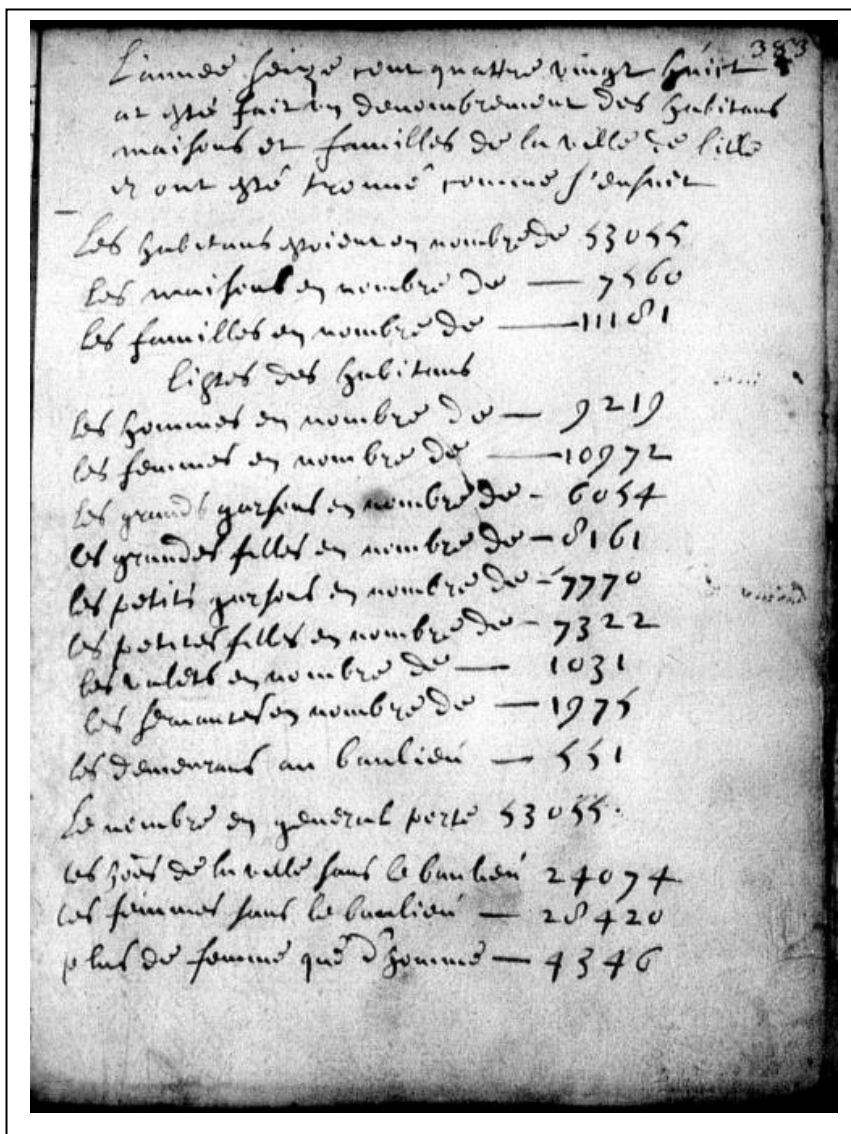 383
L'annee seize cent quattre vingt huict
at esté fait un denombrement des habitans
maisons et familles de la ville de lille
et ont esté trouvé comme s'ensuit
les habitans estoient en nombre de 53055
les maisons en nombre de — 7560
les familles en nombre de — 11181
listes des habitans
les hommes en nombre de — 9219
les femmes en nombre de — 10972
les grands garsons en nombre de - 6054
les grandes filles en nombre de - 8161
les petits garsons en nombre de - 7770
les petites filles en nombre de - 7322
les valets en nombre de — 1031
les servantes en nombre de — 1975
les demeurans au banlieu — 551
Le nombre en general porte 53055.
les hoes de la ville sans le banlieu 24074
les femmes sans le banlieu — 28420
plus de femme que d'homme — 4346